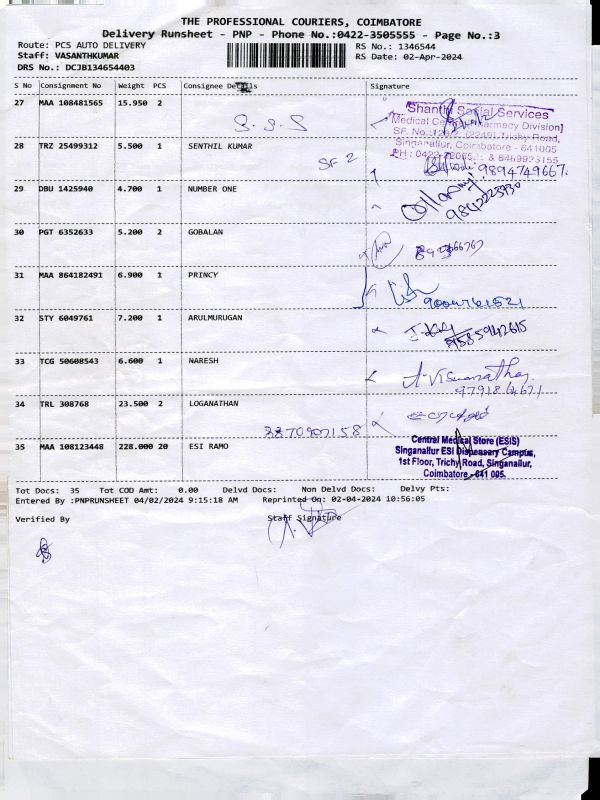 THE PROFESSIONAL COURIERS, COIMBATORE
Delivery Runsheet - PNP - Phone No.:0422-3505555 - Page No.:3
Route: PCS AUTO DELIVERY RS No.: 1346544
Staff: VASANTHKUMAR RS Date: 02-Apr-2024
DRS No.: DCJB134654403
S No Consignment No Weight PCS Consignee Details Signature
27 MAA 108481565 15.950 2
S.S.S
Shanthi Social Services
Medical Pharmacy Division]
Trichy Road,
Singanallur, Coimbatore - 641005
& 8489923155
28 TRZ 25499312 5.500 1 SENTHIL KUMAR
SF 2
9894749667.
29 DBU 1425940 4.700 1 NUMBER ONE
9842223930
30 PGT 6352633 5.200 2 GOBALAN
31 MAA 864182491 6.900 1 PRINCY
32 STY 6049761 7.200 1 ARULMURUGAN
33 TCG 50608543 6.600 1 NARESH
A. Viswanathan
34 TRL 308768 23.500 2 LOGANATHAN
35 MAA 108123448 228.000 20 ESI RAMO
Central Medical Store (ESIS)
Singanallur ESI Dispensary Campus,
1st Floor, Trichy Road, Singanallur,
Coimbatore - 641 005.
Tot Docs: 35 Tot COD Amt: 0.00 Delvd Docs: Non Delvd Docs: Delvy Pts:
Entered By :PNPRUNSHEET 04/02/2024 9:15:18 AM Reprinted On: 02-04-2024 10:56:05
Verified By Staff Signature